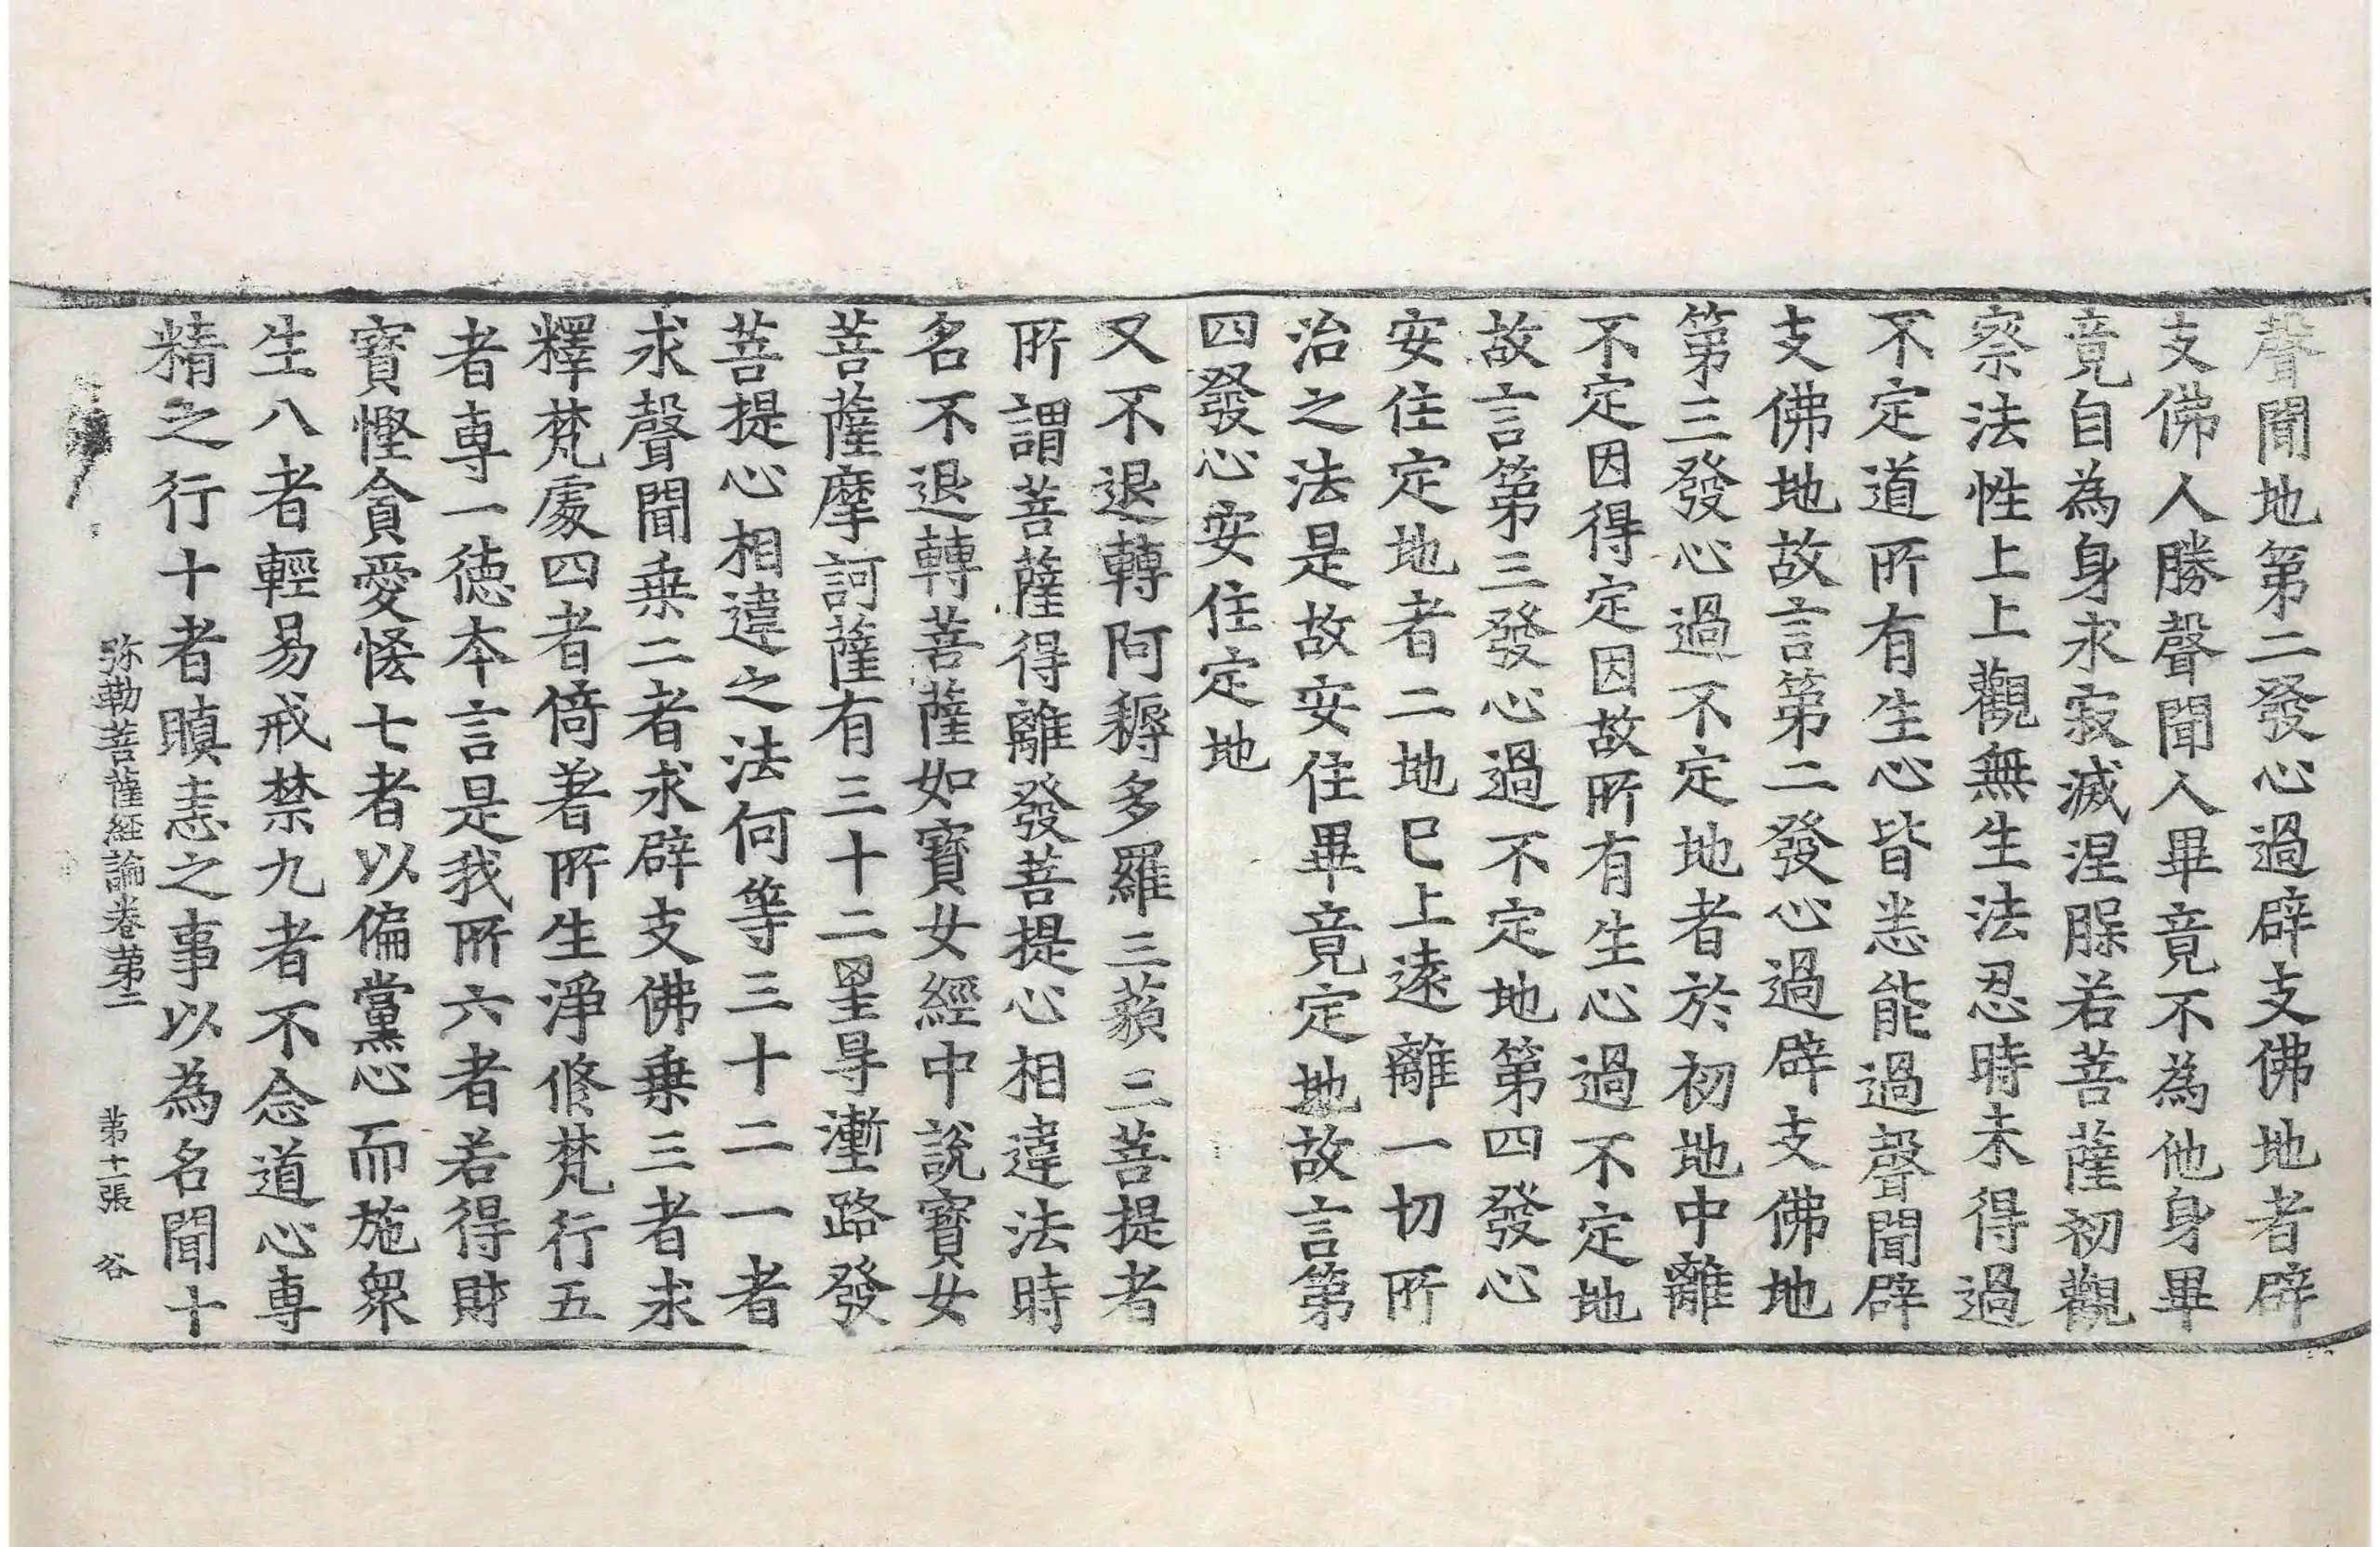 聲聞地第二發心過辟支佛地者辟
支佛人勝聲聞人畢竟不為他身畢
竟自為身求寂滅涅槃若菩薩初觀
察法性上上觀無生法忍時未得過
不定道所有生心皆悉能過聲聞辟
支佛地故言第二發心過辟支佛地
第三發心過不定地者於初地中離
不定因得定因故所有生心過不定地
故言第三發心過不定地第四發心
安住定地者二地已上遠離一切所
治之法是故安住畢竟定地故言第
四發心安住定地
又不退轉阿耨多羅三藐三菩提者
所謂菩薩得離發菩提心相違法時
名不退轉菩薩如寶女經中說寶女
菩薩摩訶薩有三十二罣㝵壍路發
菩提心相違之法何等三十二一者
求聲聞乗二者求辟支佛乗三者求
釋梵處四者倚著所生淨脩梵行五
者專一德本言是我所六者若得財
寶慳貪愛悋七者以偏黨心而施衆
生八者輕易戒禁九者不念道心專
精之行十者瞋恚之事以為名聞十
弥勒菩薩經論卷苐二 苐十一張 谷